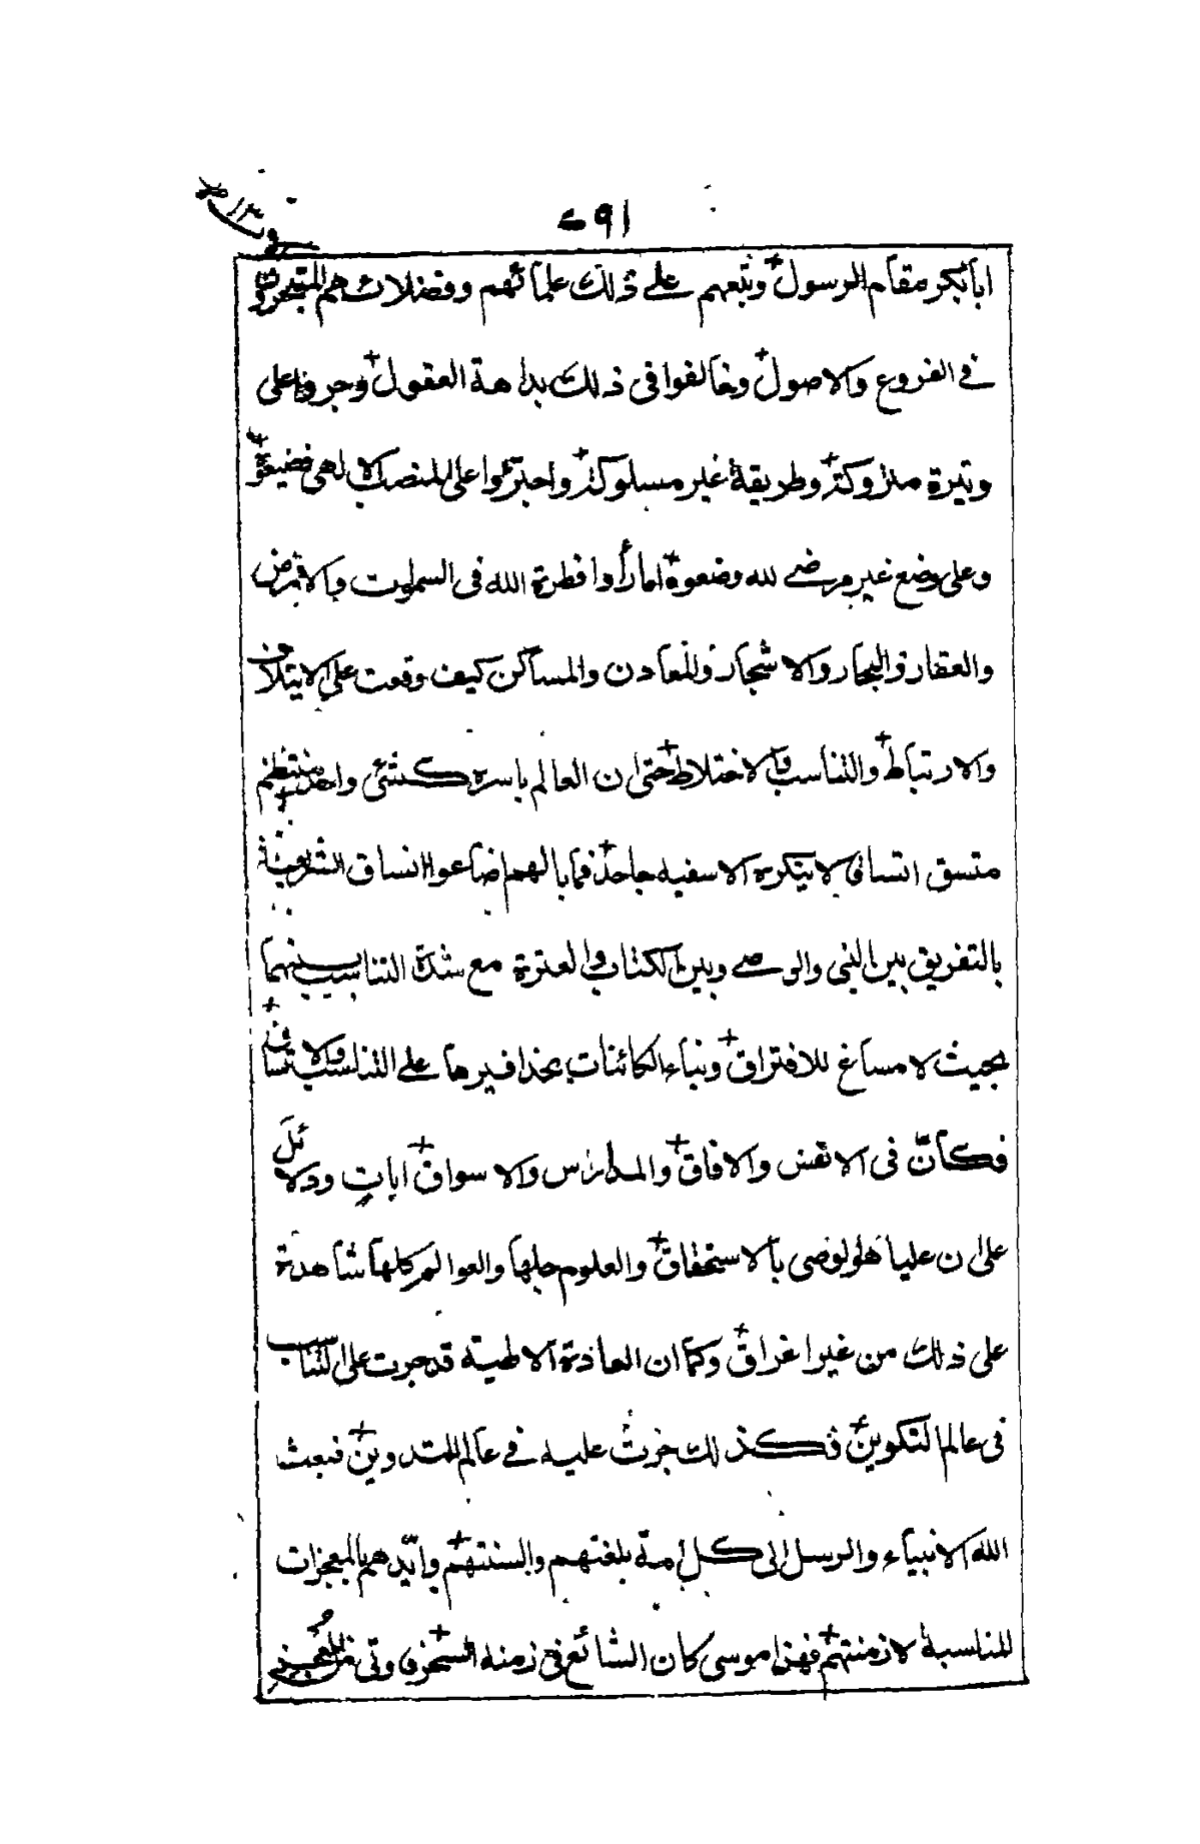 ٩١
ابابكر مقام الرسول وتبعهم على ذلك علمائهم وفضلائهم المتبحرون
في الفروع والاصول وخالفوا في ذلك بداهة العقول وجروا على
وتيرة متروكة وطريقة غير مسلوكة واجترئوا على المنصب الالهي فضيعوه
وعلى وضع غير مرضي لله وضعوه اما رأوا فطرة الله في السموات والارض
والعقار والبحار والاشجار والمعادن والمساكن كيف وقعت على الايتلاف
والارتباط والتناسب والاختلاط حتى ان العالم باسره كشئ واحد منتظم
متسق اتساق لا ينكره الا سفيه جاحد فما بالهم اضاعوا انساق الشريعة
بالتفريق بين النبي والوصي وبين الكتاب والعترة مع شدة التناسب بينهما
بحيث لا مساغ للافتراق وبناء الكائنات بحذافيرها على التناسب والاتساق
فكأنّ في الانفس والافاق والمدارس والاسواق ايات ودلائل
على ان عليا هو الوصي بالاستحقاق والعلوم جلها والعوالم كلها شاهدة
على ذلك من غير اغراق وكما ان العادة الالهية قد جرت على التناسب
في عالم التكوين فكذلك جرت عليه في عالم التدوين فبعث
الله الانبياء والرسل الى كل امة بلغتهم والسنتهم وايّدهم بالمعجزات
المناسبة لازمنتهم فهذا موسى كان الشائع في زمنه السحر